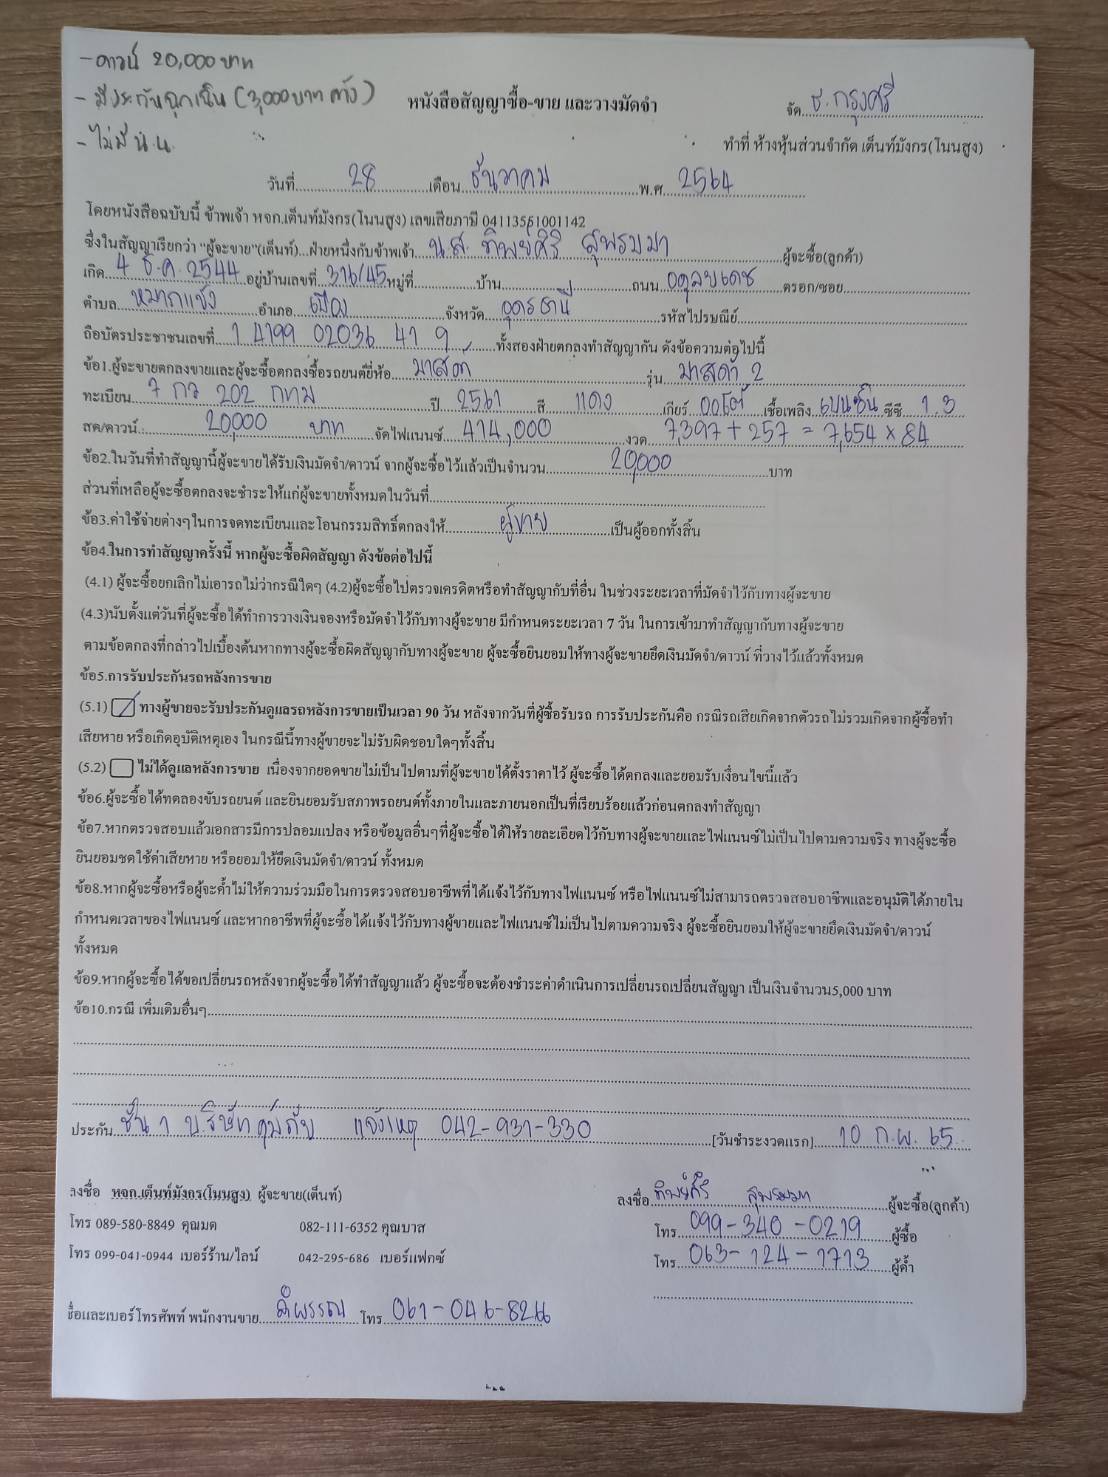 - ดาวน์ 20,000 บาท
- มีประกันฉุกเฉิน (3,000 บาท ค้าง)
หนังสือสัญญาซื้อ-ขาย และวางมัดจำ
จัด ธ. กรุงศรี
- ไม่มี น.น.
ทำที่ ห้างหุ้นส่วนจำกัด เต็นท์มังกร(โนนสูง)
วันที่ 28 เดือน ธันวาคม พ.ศ. 2564
โดยหนังสือฉบับนี้ ข้าพเจ้า หจก.เต็นท์มังกร(โนนสูง) เลขเสียภาษี 04113561001142
ซึ่งในสัญญาเรียกว่า "ผู้จะขาย"(เต็นท์)...ฝ่ายหนึ่งกับข้าพเจ้า น.ส. ทิพย์ศิริ สุพรมมา ผู้จะซื้อ(ลูกค้า)
เกิด 4 ธ.ค. 2544 อยู่บ้านเลขที่ 316/45 หมู่ที่ บ้าน ถนน อดุลยเดช ตรอก/ซอย
ตำบล หมากแข้ง อำเภอ เมือง จังหวัด อุดรธานี รหัสไปรษณีย์
ถือบัตรประชาชนเลขที่ 1 4199 02036 41 9 ทั้งสองฝ่ายตกลงทำสัญญากัน ดังข้อความต่อไปนี้
ข้อ1.ผู้จะขายตกลงขายและผู้จะซื้อตกลงซื้อรถยนต์ยี่ห้อ มาสด้า รุ่น มาสด้า 2
ทะเบียน 7 กว 202 กทม ปี 2561 สี แดง เกียร์ ออโต้ เชื้อเพลิง เบนซิน ซีซี 1.3
สด/ดาวน์ 20,000 บาท จัดไฟแนนซ์ 414,000 งวด 7,397 + 257 = 7,654 x 84
ข้อ2.ในวันที่ทำสัญญานี้ผู้จะขายได้รับเงินมัดจำ/ดาวน์ จากผู้จะซื้อไว้แล้วเป็นจำนวน 20,000 บาท
ส่วนที่เหลือผู้จะซื้อตกลงจะชำระให้แก่ผู้จะขายทั้งหมดในวันที่
ข้อ3.ค่าใช้จ่ายต่างๆในการจดทะเบียนและโอนกรรมสิทธิ์ตกลงให้ ผู้ขาย เป็นผู้ออกทั้งสิ้น
ข้อ4.ในการทำสัญญาครั้งนี้ หากผู้จะซื้อผิดสัญญา ดังข้อต่อไปนี้
(4.1) ผู้จะซื้อยกเลิกไม่เอารถไม่ว่ากรณีใดๆ (4.2)ผู้จะซื้อไปตรวจเครดิตหรือทำสัญญากับที่อื่น ในช่วงระยะเวลาที่มัดจำไว้กับทางผู้จะขาย
(4.3)นับตั้งแต่วันที่ผู้จะซื้อได้ทำการวางเงินจองหรือมัดจำไว้กับทางผู้จะขาย มีกำหนดระยะเวลา 7 วัน ในการเข้ามาทำสัญญากับทางผู้จะขาย
ตามข้อตกลงที่กล่าวไปเบื้องต้นหากทางผู้จะซื้อผิดสัญญากับทางผู้จะขาย ผู้จะซื้อยินยอมให้ทางผู้จะขายยึดเงินมัดจำ/ดาวน์ ที่วางไว้แล้วทั้งหมด
ข้อ5.การรับประกันรถหลังการขาย
(5.1) ทางผู้ขายจะรับประกันดูแลรถหลังการขายเป็นเวลา 90 วัน หลังจากวันที่ผู้ซื้อรับรถ การรับประกันคือ กรณีรถเสียเกิดจากตัวรถไม่รวมเกิดจากผู้ซื้อทำ
เสียหาย หรือเกิดอุบัติเหตุเอง ในกรณีนี้ทางผู้ขายจะไม่รับผิดชอบใดๆทั้งสิ้น
(5.2) ไม่ได้ดูแลหลังการขาย เนื่องจากยอดขายไม่เป็นไปตามที่ผู้จะขายได้ตั้งราคาไว้ ผู้จะซื้อได้ตกลงและยอมรับเงื่อนไขนี้แล้ว
ข้อ6.ผู้จะซื้อได้ทดลองขับรถยนต์ และยินยอมรับสภาพรถยนต์ทั้งภายในและภายนอกเป็นที่เรียบร้อยแล้วก่อนตกลงทำสัญญา
ข้อ7.หากตรวจสอบแล้วเอกสารมีการปลอมแปลง หรือข้อมูลอื่นๆที่ผู้จะซื้อได้ให้รายละเอียดไว้กับทางผู้จะขายและไฟแนนซ์ไม่เป็นไปตามความจริง ทางผู้จะซื้อ
ยินยอมชดใช้ค่าเสียหาย หรือยอมให้ยึดเงินมัดจำ/ดาวน์ ทั้งหมด
ข้อ8.หากผู้จะซื้อหรือผู้จะค้ำไม่ให้ความร่วมมือในการตรวจสอบอาชีพที่ได้แจ้งไว้กับทางไฟแนนซ์ หรือไฟแนนซ์ไม่สามารถตรวจสอบอาชีพและอนุมัติได้ภายใน
กำหนดเวลาของไฟแนนซ์ และหากอาชีพที่ผู้จะซื้อได้แจ้งไว้กับทางผู้ขายและไฟแนนซ์ไม่เป็นไปตามความจริง ผู้จะซื้อยินยอมให้ผู้จะขายยึดเงินมัดจำ/ดาวน์
ทั้งหมด
ข้อ9.หากผู้จะซื้อได้ขอเปลี่ยนรถหลังจากผู้จะซื้อได้ทำสัญญาแล้ว ผู้จะซื้อจะต้องชำระค่าดำเนินการเปลี่ยนรถเปลี่ยนสัญญา เป็นเงินจำนวน5,000 บาท
ข้อ10.กรณี เพิ่มเติมอื่นๆ
ประกัน ชั้น 1 บริษัท คุ้มภัย แจ้งเหตุ 042-931-330 [วันชำระงวดแรก] 10 ก.พ. 65
ลงชื่อ หจก.เต็นท์มังกร(โนนสูง) ผู้จะขาย(เต็นท์)
ลงชื่อ ทิพย์ศิริ สุพรมมา ผู้จะซื้อ(ลูกค้า)
โทร 089-580-8849 คุณมด 082-111-6352 คุณบาส
โทร 099-340-0219 ผู้ซื้อ
โทร 099-041-0944 เบอร์ร้าน/ไลน์ 042-295-686 เบอร์แฟกซ์
โทร 063-124-1713 ผู้ค้ำ
ชื่อและเบอร์โทรศัพท์ พนักงานขาย โทร 061-046-8266